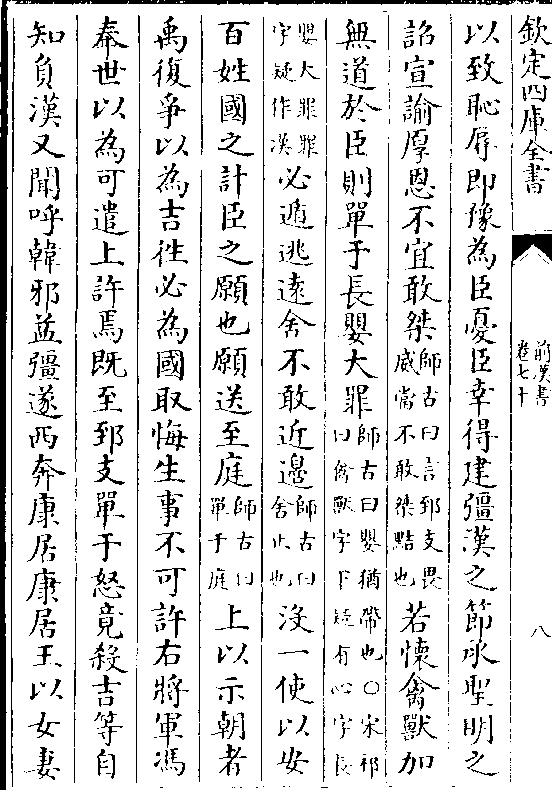 欽定四庫全書
前漢書
卷七十
八
以致恥辱即豫為臣憂臣幸得建彊漢之節承聖明之
詔宣諭厚恩不宜敢桀師古曰言郅支畏威當不敢桀黠也若懷禽獸加
無道於臣則單于長嬰大罪師古曰嬰猶帶也○宋祁曰禽獸字下疑有心字長
嬰大罪罪字疑作漢必遁逃遠舍不敢近邊師古曰舍止也沒一使以安
百姓國之計臣之願也願送至庭師古曰單于庭上以示朝者
禹復爭以為吉徃必為國取悔生事不可許右將軍馮
奉世以為可遣上許焉既至郅支單于怒竟殺吉等自
知負漢又聞呼韓邪益彊遂西奔康居康居王以女妻